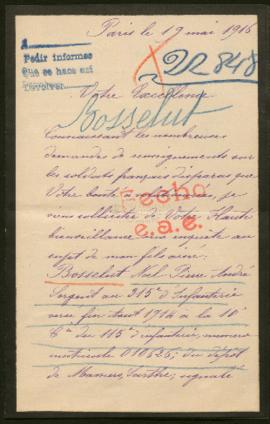 Paris le 19 mai 1916
A
Pedir informes
Que se haga así
Devolver
22848
Votre Excellence
Bosselut
Connaissant les nombreuses
demandes de renseignements sur
les soldats français disparus que
Votre bonté a je
viens solliciter de Votre Haute
hecho
bienveillance une enquête au
e.a.e.
sujet de mon fils aîné.
Bosselut Noël Pierre André
Sergent au 315e d'Infanterie
août 1914 à la 10e
Cie du 115e d'infanterie, numéro
matricule 010525, du dépôt
de Mamers, Sarthe, signalé